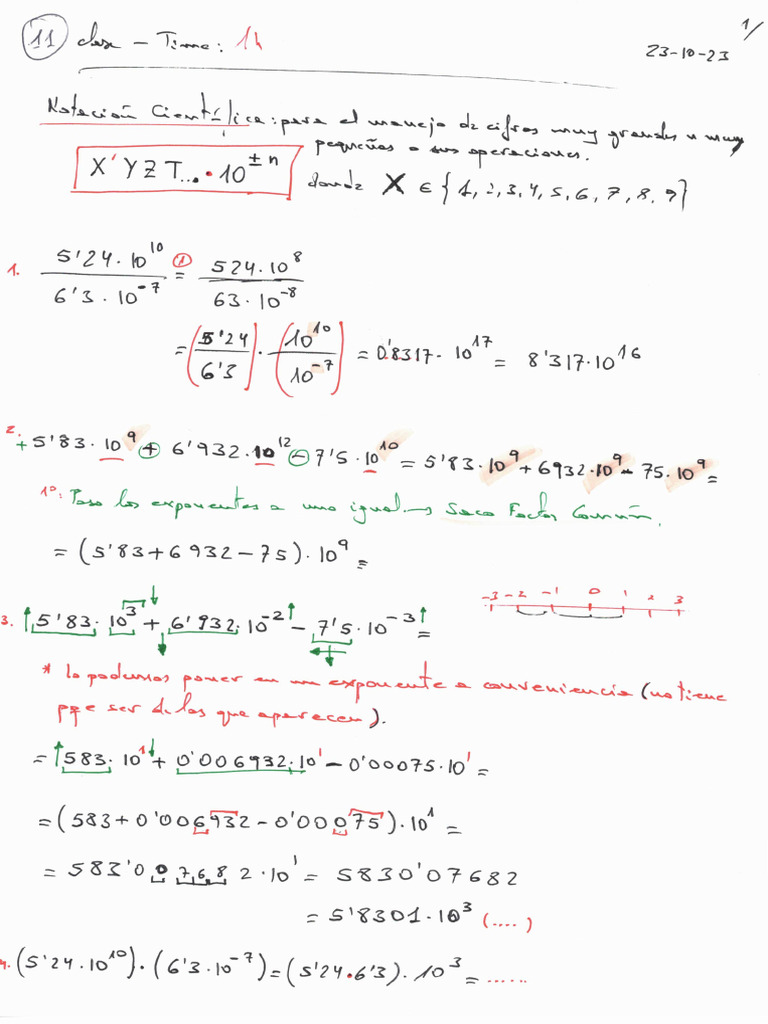 1/
11 clase - Time: 1h
23-10-23
Notación Científica: para el manejo de cifras muy grandes u muy
pequeñas o sus operaciones.
X'YZT...·10^±n
donde X ∈ {1, 2, 3, 4, 5, 6, 7, 8, 9}
1. 5'24·10^10 / 6'3·10^-7 =① 524·10^8 / 63·10^-8
= (5'24 / 6'3) · (10^10 / 10^-7) = 0'8317·10^17 = 8'317·10^16
2. +5'83·10^9 + 6'932·10^12 - 7'5·10^10 = 5'83·10^9 + 6932·10^9 - 75·10^9 =
1º: Paso los exponentes a uno igual → Saco Factor Común.
= (5'83+6932-75)·10^9 =
-3 -2 -1 0 1 2 3
3. 5'83·10^3 + 6'932·10^-2 - 7'5·10^-3 =
* lo podemos poner en un exponente a conveniencia (no tiene
pqe ser de los que aparecen).
= 583·10^1 + 0'006932·10^1 - 0'00075·10^1 =
= (583+0'006932-0'00075)·10^1 =
= 583'007682·10^1 = 5830'07682
= 5'8301·10^3 (....)
4. (5'24·10^10)·(6'3·10^-7) = (5'24·6'3)·10^3 = ......